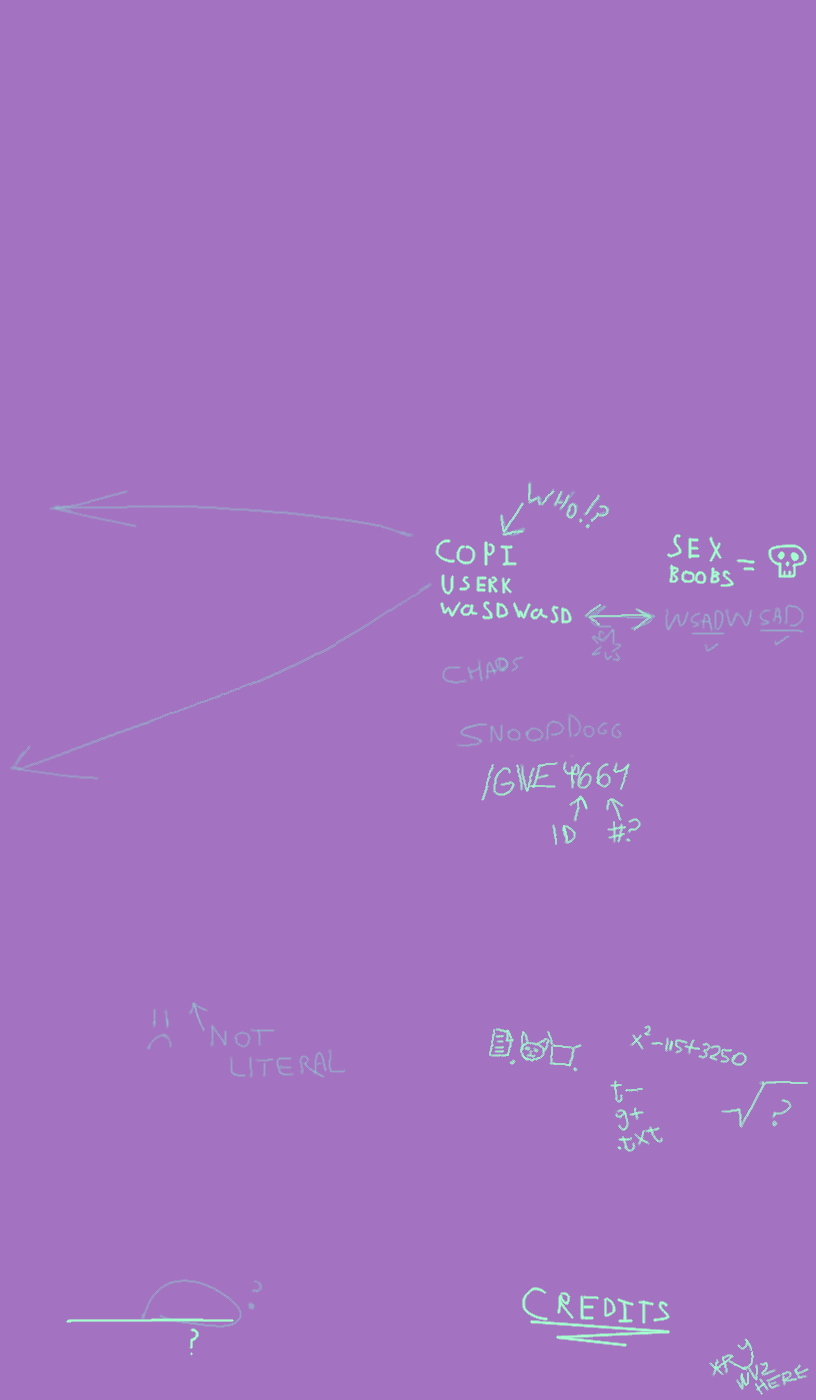 WHO!?
COPI
USERK
WaSDWaSD
SEX
BOOBS =
WSADWSAD
CHAOS
SNOOPDOGG
/GIVE 4664
ID #?
NOT
LITERAL
x²-115+3250
t-
g+
.txt
√?
?
?
CREDITS
HERE